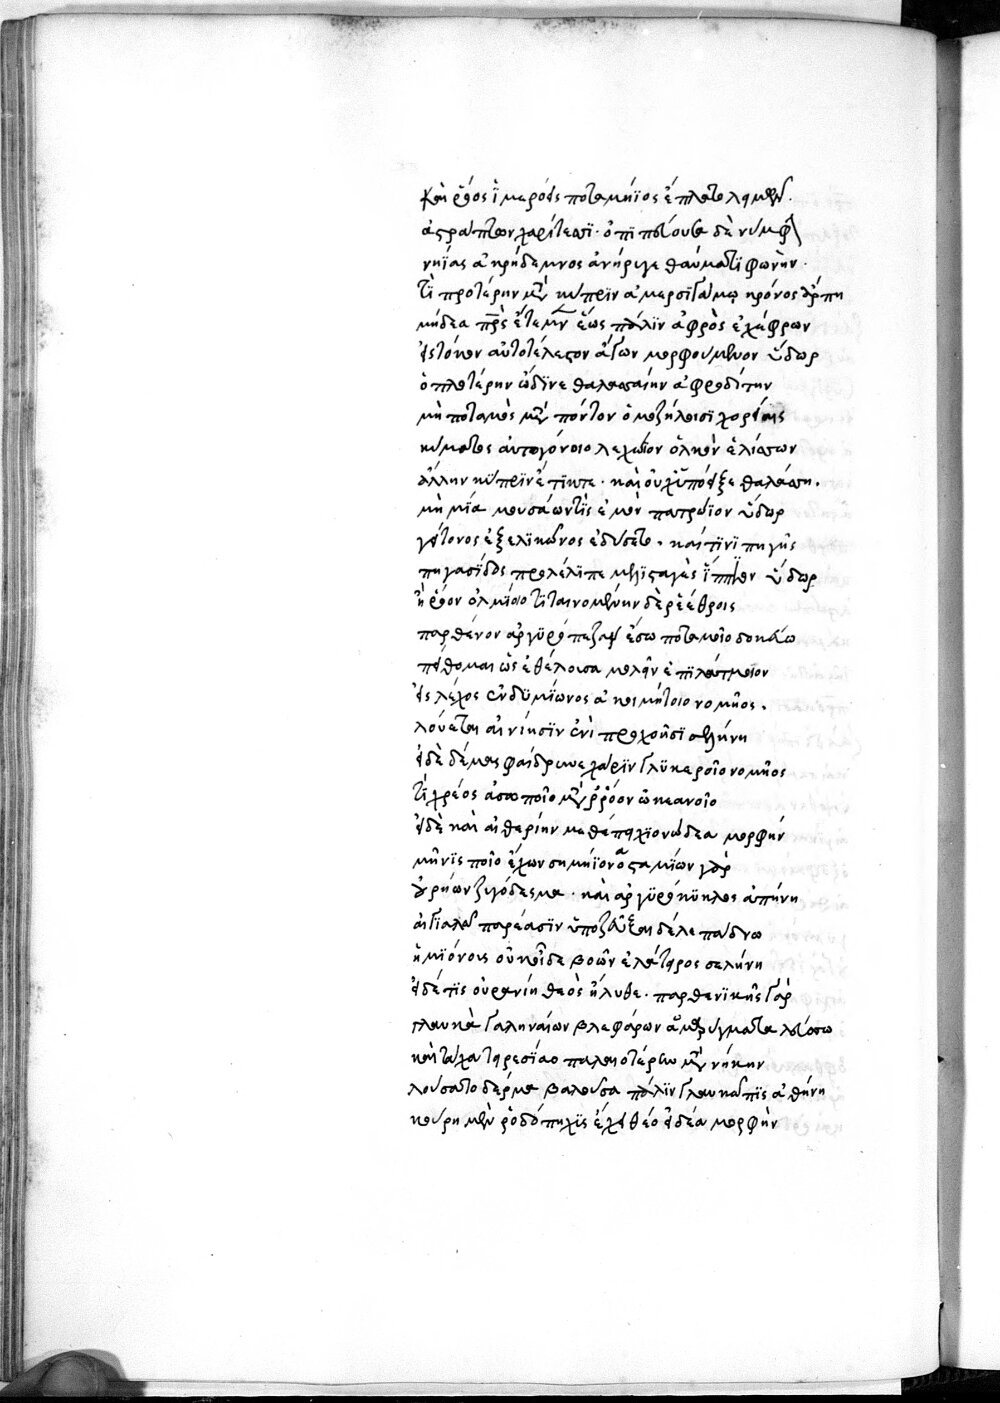 καὶ ῥόος ἱμερόεις ποταμήϊος ἔπλετο λύμῃσιν.
ἀστράπτων χαρίτεσσϊ· ὀπιπτεύουσα δὲ νύμφην
νηϊὰς ἀκρήδεμνος ἀνήρυγε θαύματϊ φωνήν·
τί προτέρην μετὰ κύπριν ἀμερσϊγάμῳ κρόνος ἅρπῃ
μήδεα πατρὸς ἔτεμνεν ἕως πάλϊν ἀφρὸς ἐλάφρων
εἰς τόκον αὐτοτέλεστον ἄγων μορφούμενον ὕδωρ
ὁπλοτέρην ὤδϊνε θαλασσαίην ἀφροδίτην
μὴ ποταμὸς μετὰ πόντον ὁμοζήλοισϊ λοχείαις
κύματος αὐτογόνοιο λεχώϊον ὁλκὸν ἑλίσσων
ἄλλην κύπρϊν ἔτικτε· καὶ οὐχ ὑπόειξε θαλάσσῃ.
μὴ μία μουσάων τὶς ἐμὸν πατρώϊον ὕδωρ
γείτονος ἐξ ἑλικῶνος ἐδύσετο. καί τϊνϊ πηγῆς
πηγασίδος προλέλϊπε μελϊσταγὲς ἵππϊον ὕδωρ
ἢ ῥόον ὀλμειοῖο τϊταινομένην δὲ ῥεέθροις
παρθένον ἀργϋρόπεζαν ἔσω ποταμοῖο δοκεύω
πείθομαι ὡς ἐθέλουσα μολεῖν ἐπϊ λάτμιον
εἰς λέχος ἐνδϋμίωνος ἀκοιμήτοιο νομῆος.
λούεται αἰνίησϊν ἐνὶ προχοῇσϊ σελήνη
εἰ δὲ δέμας φαίδρυνε χάρϊν γλϋκεροῖο νομῆος
τί χρέος ἀσωποῖο μετὰ ῥόον ὠκεανοῖο
εἰ δὲ καὶ αἰθερίην μεθέπει χϊονώδεα μορφήν
μηνὶς ποῖο ἔχων σημήϊον ἀσταμίων γὰρ
εἰρήων ζυγόδεσμα· καὶ ἀργϋρόκϋκλος ἀπήνη
αἰγϊαλῷ παρέασϊν ὑποζεῦξαι δέ λεπάδνῳ
ἡμϊόνοις οὐκ οἶδε βοῶν ἐλάτειρα σελήνη
εἰ δέ τϊς οὐρανίη θεὸς ἤλυθε· παρθενϊκῆς γὰρ
γλαυκὰ γαληναίων βλεφάρων ἀμαρύγματα λεύσσω
καὶ τάχα τειρεσίαο παλαιοτέρῳ μετὰ νίκην
λούσατο δέρμα βαλοῦσα πάλϊν γλαυκῶπϊς ἀθήνη
κούρη μὲν ῥοδόπηχϊς ἔχει θεοειδέα μορφὴν